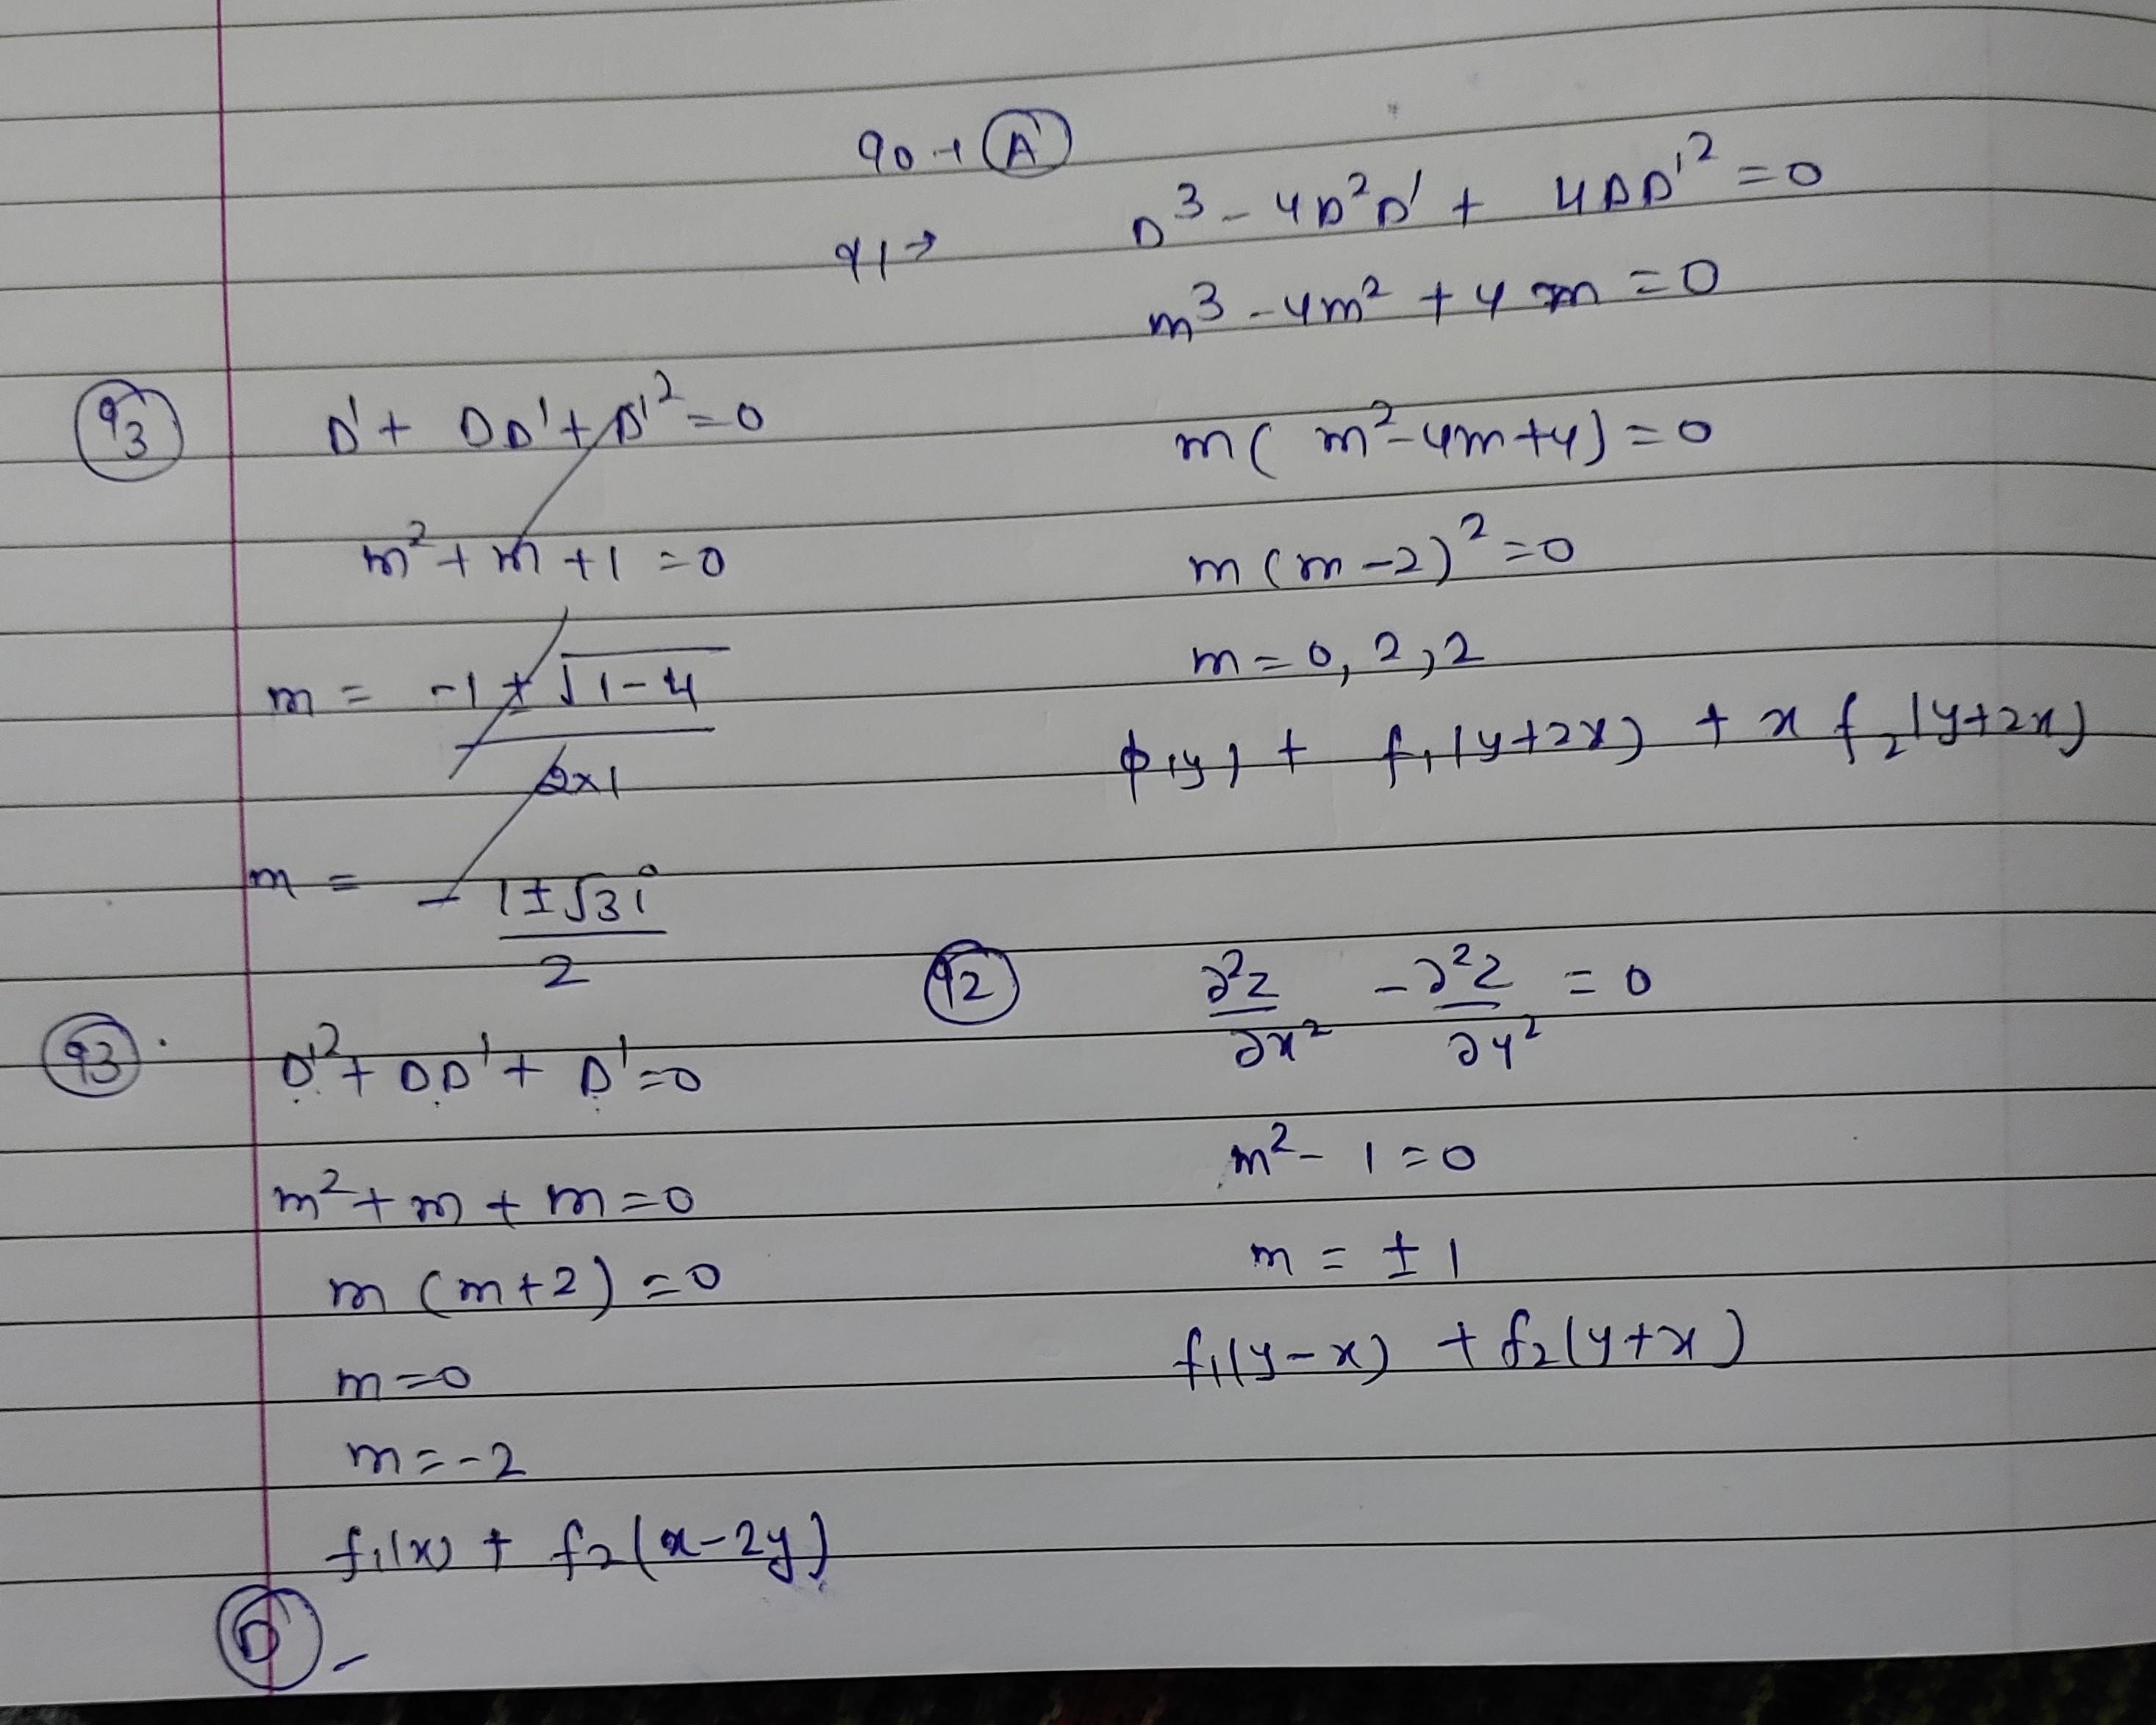 90 → (A)
91 → D³ - 4D²D' + 4DD'² = 0
m³ - 4m² + 4m = 0
m(m² - 4m + 4) = 0
m(m - 2)² = 0
m = 0, 2, 2
ϕ(y) + f₁(y+2x) + x f₂(y+2x)
(93) D' + DD' + D'² = 0
m² + m + 1 = 0
m = -1 ± √1-4 / 2×1
m = - 1 ± √3i / 2
(92) ∂²z/∂x² - ∂²z/∂y² = 0
m² - 1 = 0
m = ± 1
f₁(y-x) + f₂(y+x)
(93). D'² + DD' + D' = 0
m² + m + m = 0
m (m+2) = 0
m = 0
m = -2
f₁(x) + f₂(x-2y)
(D) -